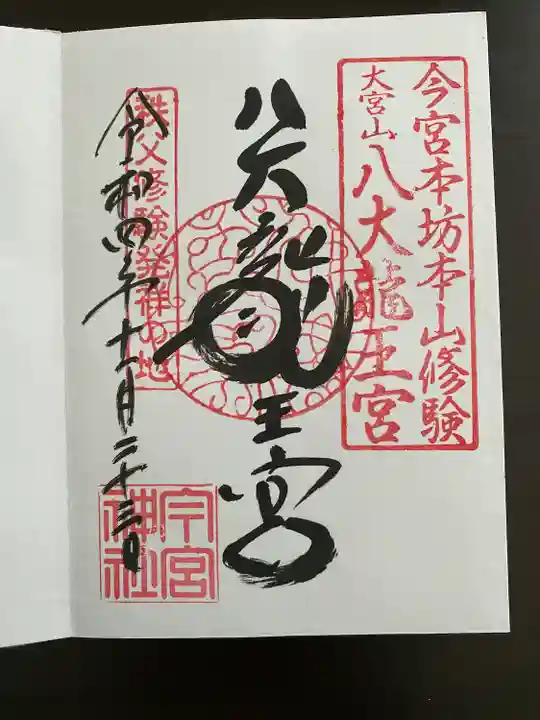 今宮本坊本山修験
大宮山八大龍王宮
八大龍王宮
秩父修験発祥の地
令和四年十一月二十三日
今宮
神社